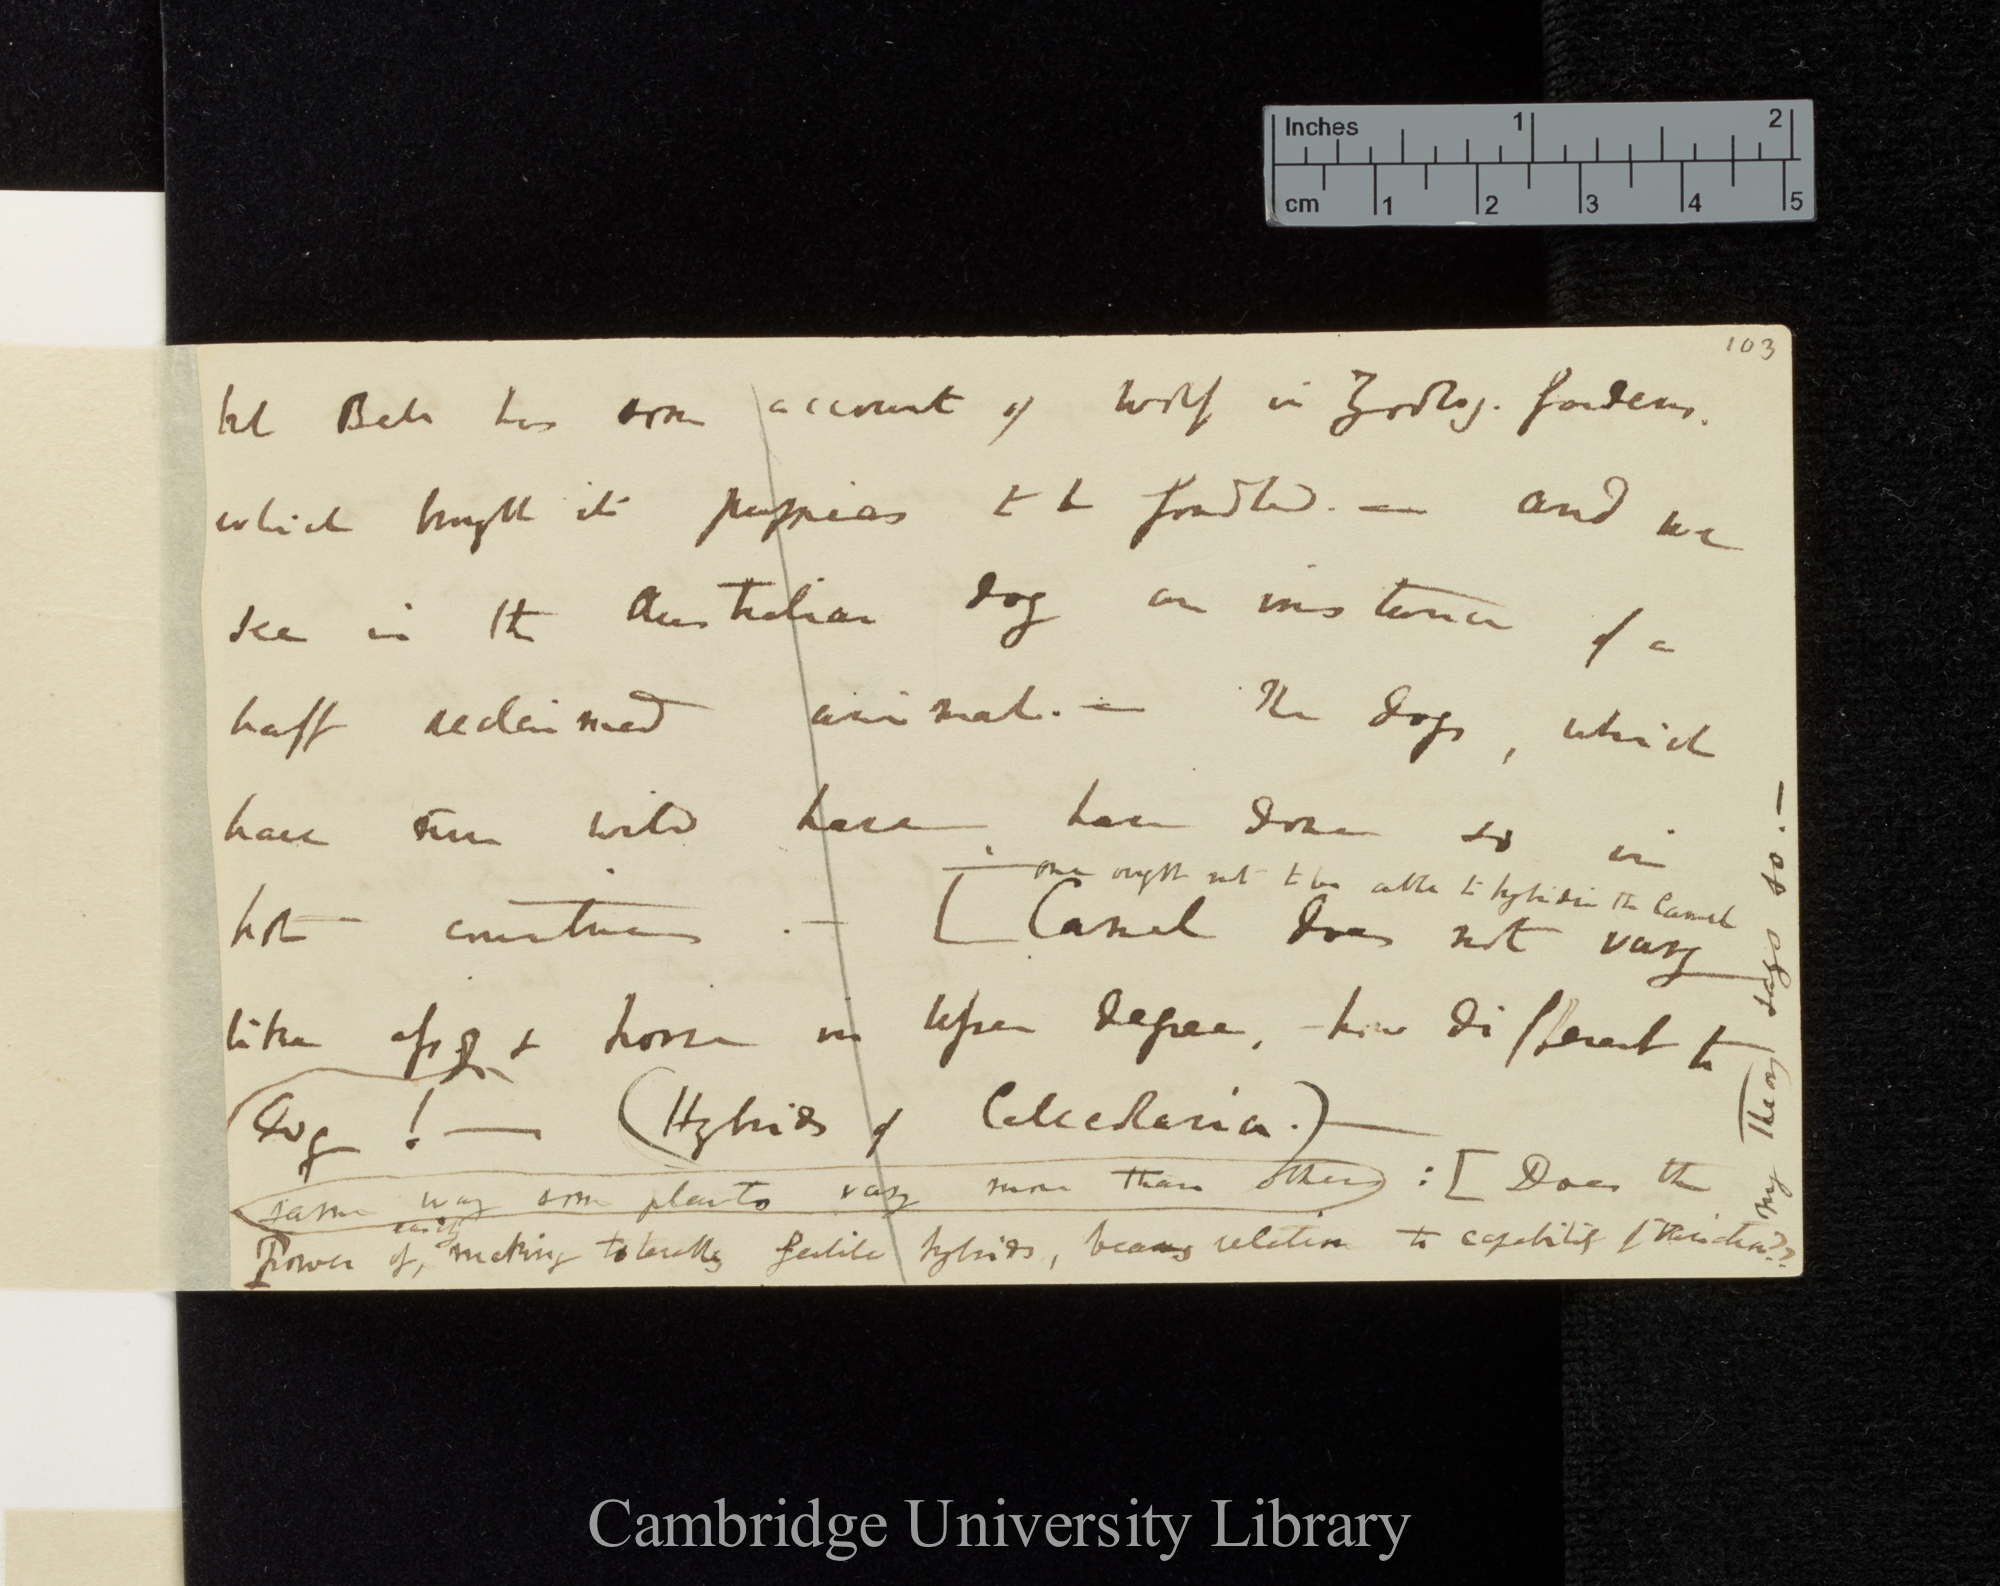 Inches 1 2
cm 1 2 3 4 5
103
but Bell has some account of Wolf in Zoolog. Gardens.
which brought its puppies to be fondled. — and we
see in the Australian dog an instance of a
half reclaimed animal. — The dogs, which
have run wild have, have done so in
hot countries. — [Camel does not vary
— one ought not to be able to hybridise the Camel
like ass & horse in less degree, — how different to
dog! — (Hybrids of Calceolaria.) —
same way some plants vary more than others : [Does the
easily
Power of, making tolerably fertile hybrids, bears relation to capability of variation??
my Theory says so. —
Cambridge University Library